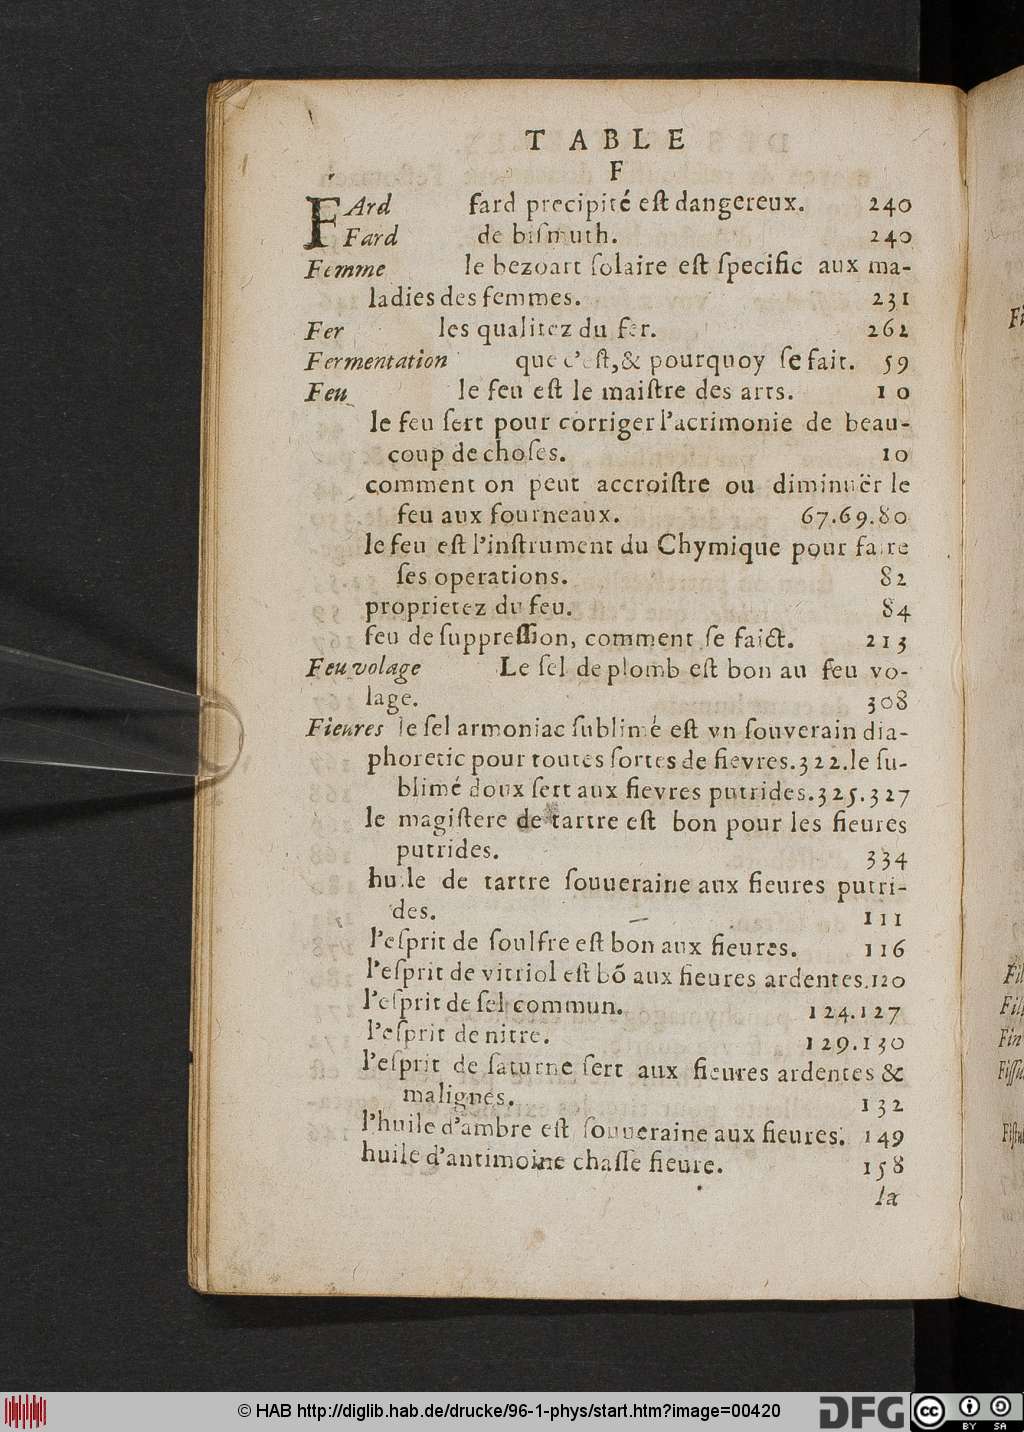 TABLE
F
FArd fard precipité eſt dangereux. 240
Fard de biſmuth. 240
Femme le bezoart ſolaire eſt ſpecific aux ma-
ladies des femmes. 231
Fer les qualitez du fer. 262
Fermentation que c'eſt, & pourquoy ſe fait. 59
Feu le feu eſt le maiſtre des arts. 10
le feu ſert pour corriger l'acrimonie de beau-
coup de choſes. 10
comment on peut accroiſtre ou diminuër le
feu aux fourneaux. 67.69.80
le feu eſt l'inſtrument du Chymique pour faire
ſes operations. 82
proprietez du feu. 84
feu de ſuppreſſion, comment ſe faict. 213
Feu volage Le ſel de plomb eſt bon au feu vo-
lage. 308
Fieures le ſel armoniac ſublimé eſt vn ſouverain dia-
phoretic pour toutes ſortes de fievres. 322. le ſu-
blimé doux ſert aux fievres putrides. 325.327
le magiſtere de tartre eſt bon pour les fieures
putrides. 334
huile de tartre ſouueraine aux fieures putri-
des. 111
l'eſprit de ſoulfre eſt bon aux fieures. 116
l'eſprit de vitriol eſt bõ aux fieures ardentes. 120
l'eſprit de ſel commun. 124.127
l'eſprit de nitre. 129.130
l'eſprit de ſaturne ſert aux fieures ardentes &
malignes. 132
l'huile d'ambre eſt ſouueraine aux fieures. 149
huile d'antimoine chaſſe fieure. 158
la
© HAB http://diglib.hab.de/drucke/96-1-phys/start.htm?image=00420
DFG
cc
BY SA